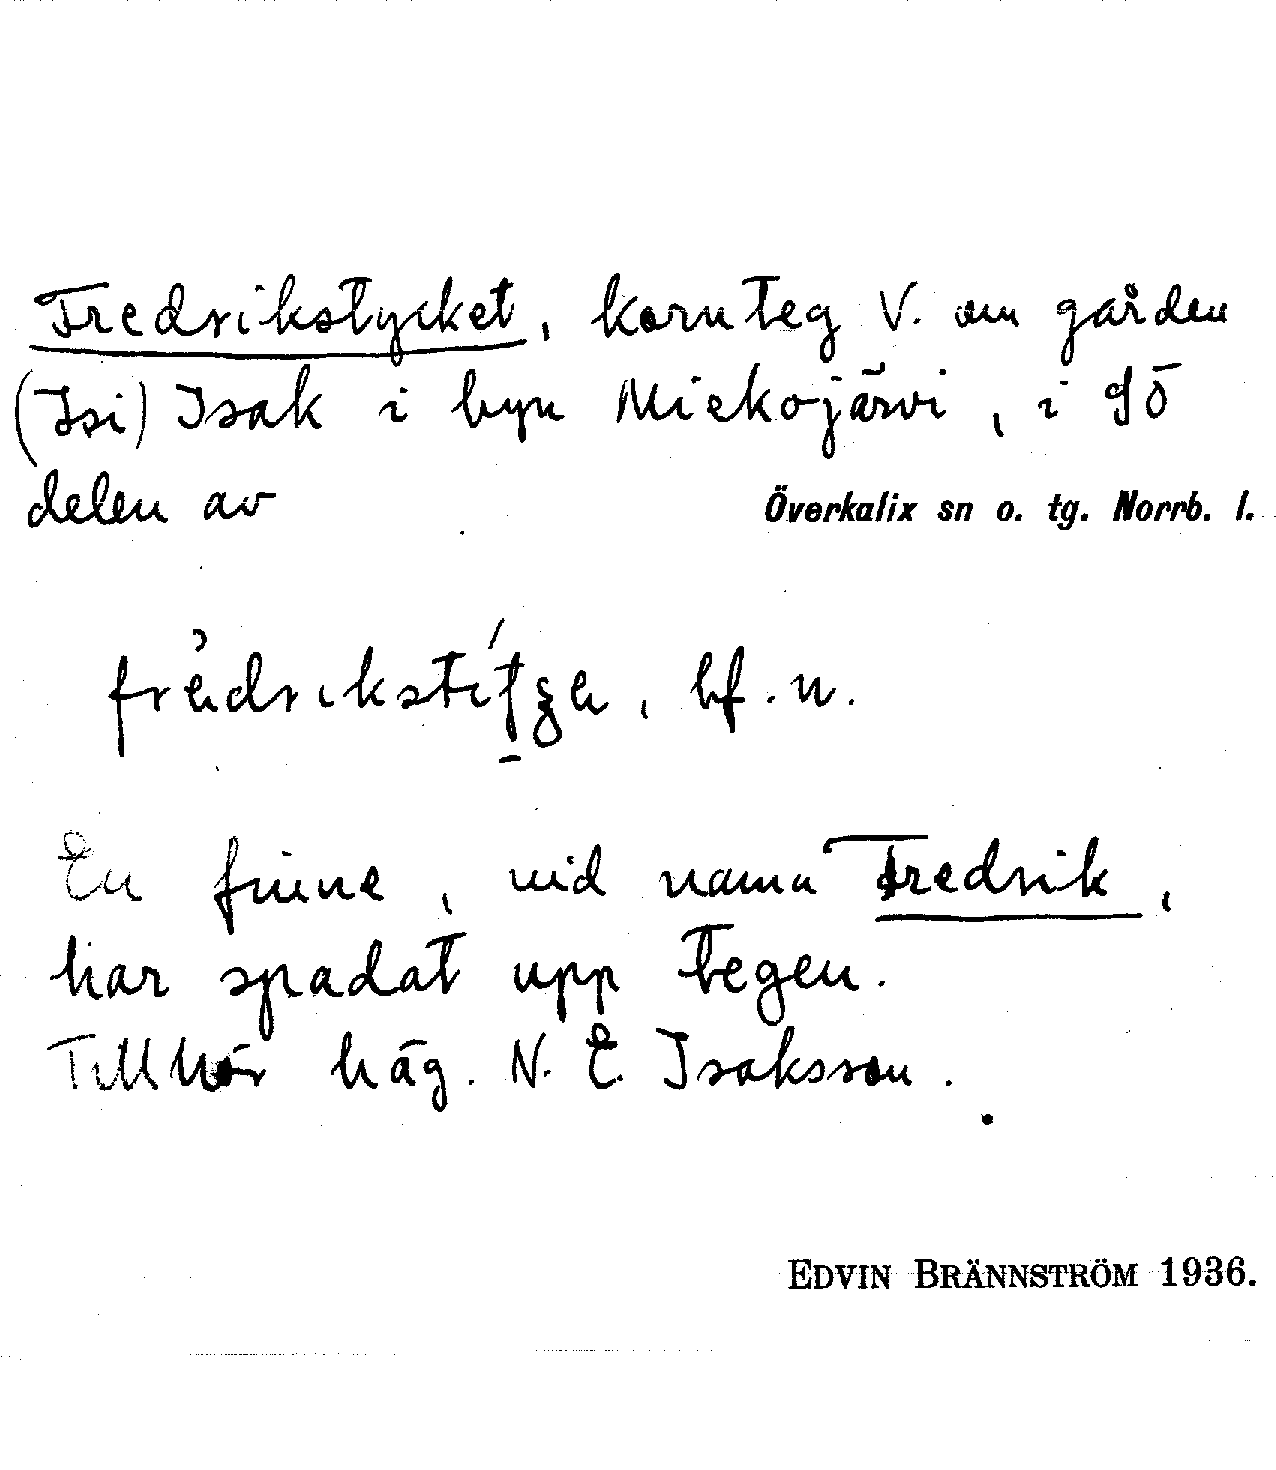 Fredrikstycket, kornteg V. om gården
(Isi) Isak i byn Miekojärvi, i SÖ
delen av Överkalix sn o. tg. Norrb. l.
bf. n.
En finne, vid namn Fredrik,
har spadat upp tegen.
Tillhör häg. N. E. Isaksson.
EDVIN BRÄNNSTRÖM 1936.